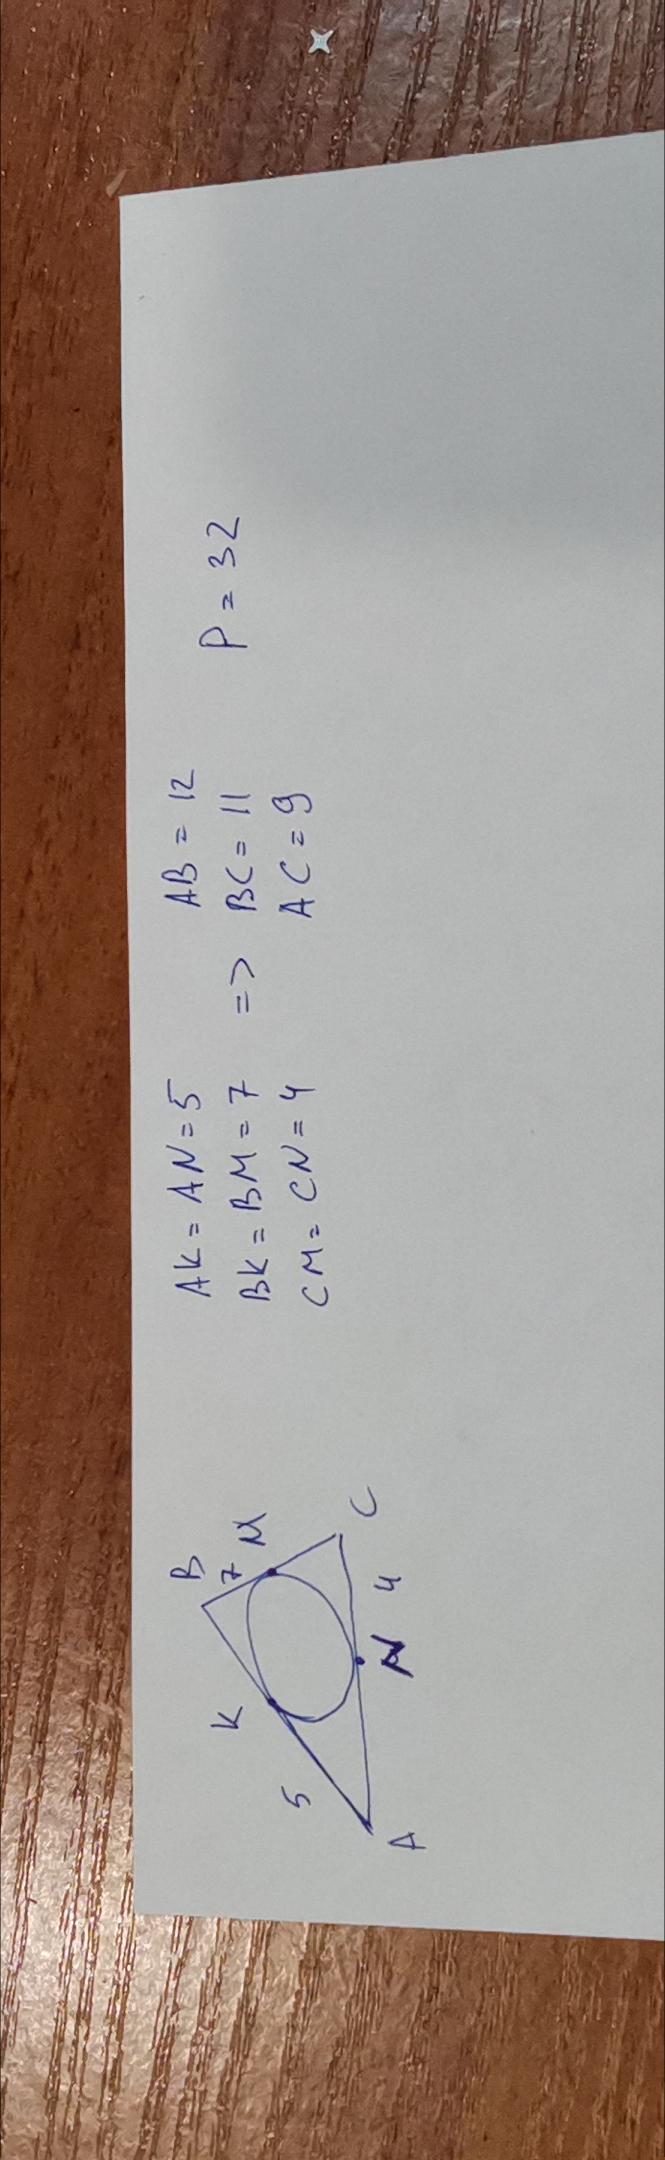 B
K
7
M
5
A
N
4
C
AK = AN = 5
BK = BM = 7
CM = CN = 4
=>
AB = 12
BC = 11
AC = 9
P = 32